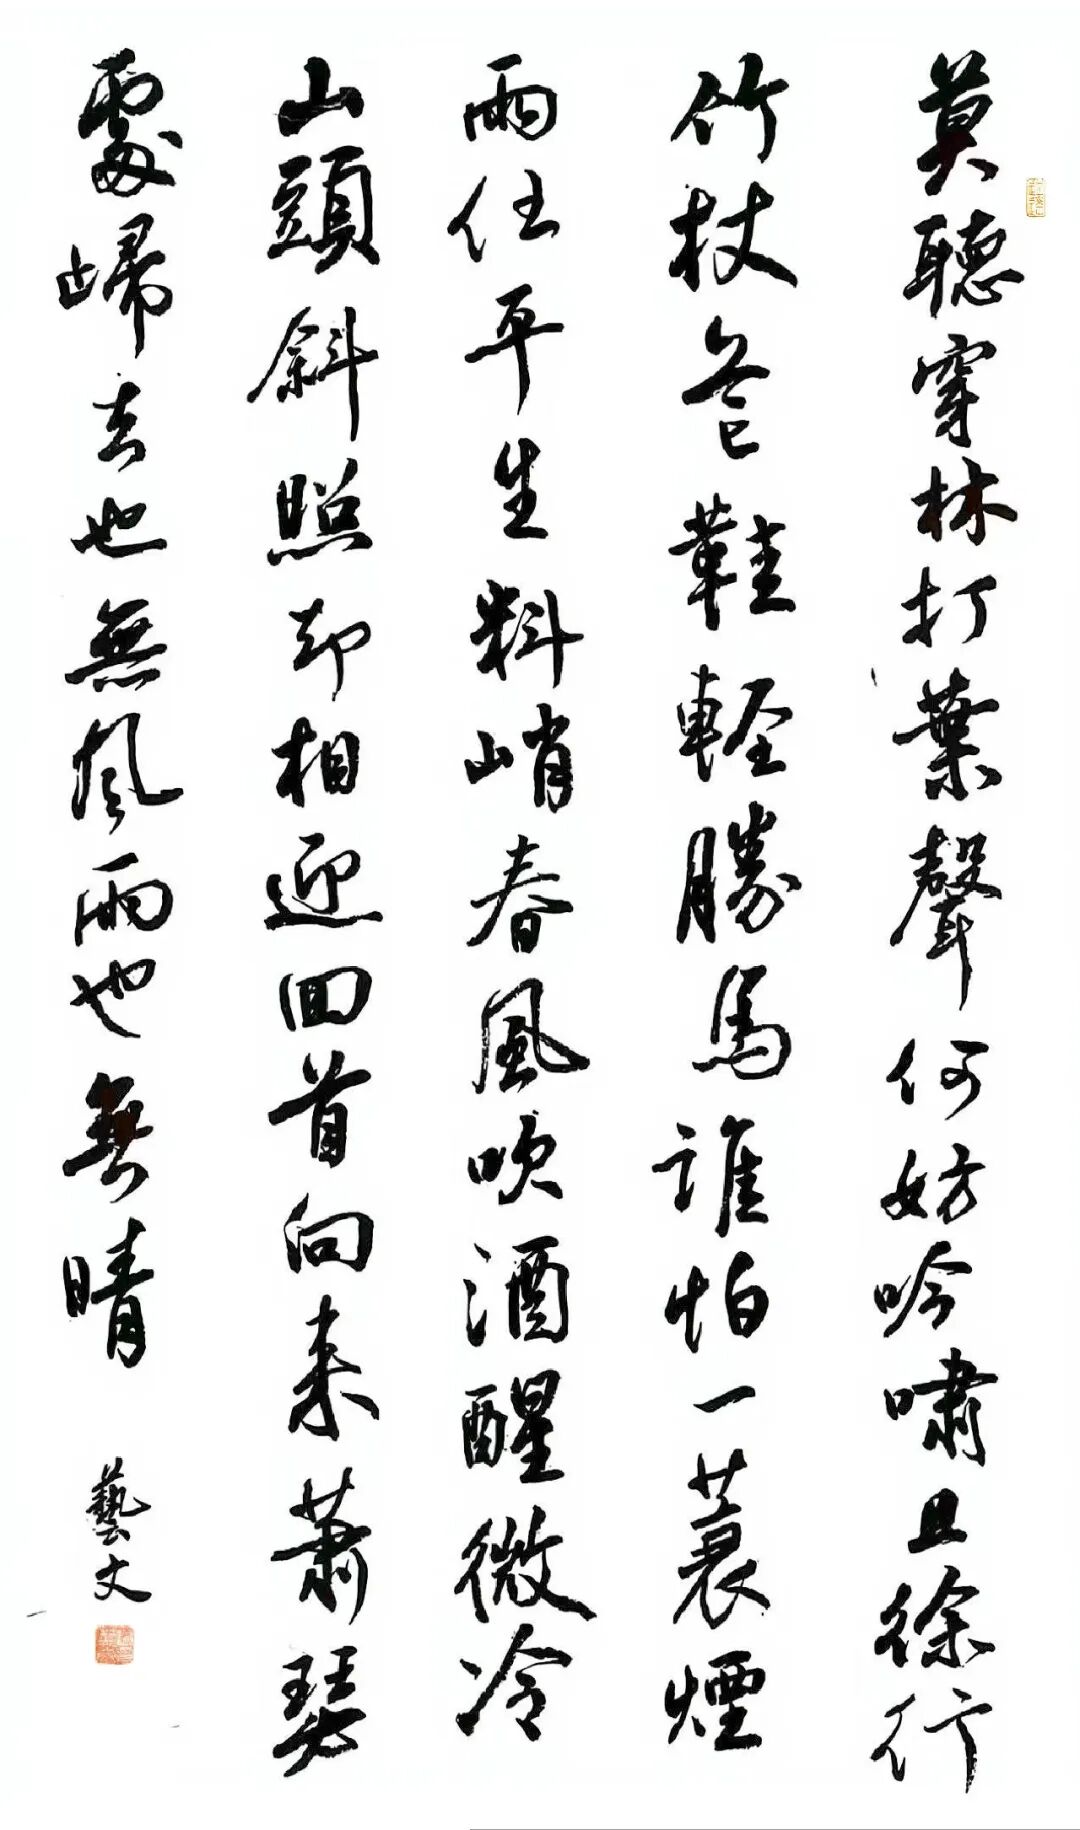 莫聽穿林打葉聲何妨吟嘯且徐行
竹杖芒鞋輕勝馬誰怕一蓑煙
雨任平生料峭春風吹酒醒微冷
山頭斜照却相迎回首向来蕭瑟
處歸去也無風雨也無晴
藝文